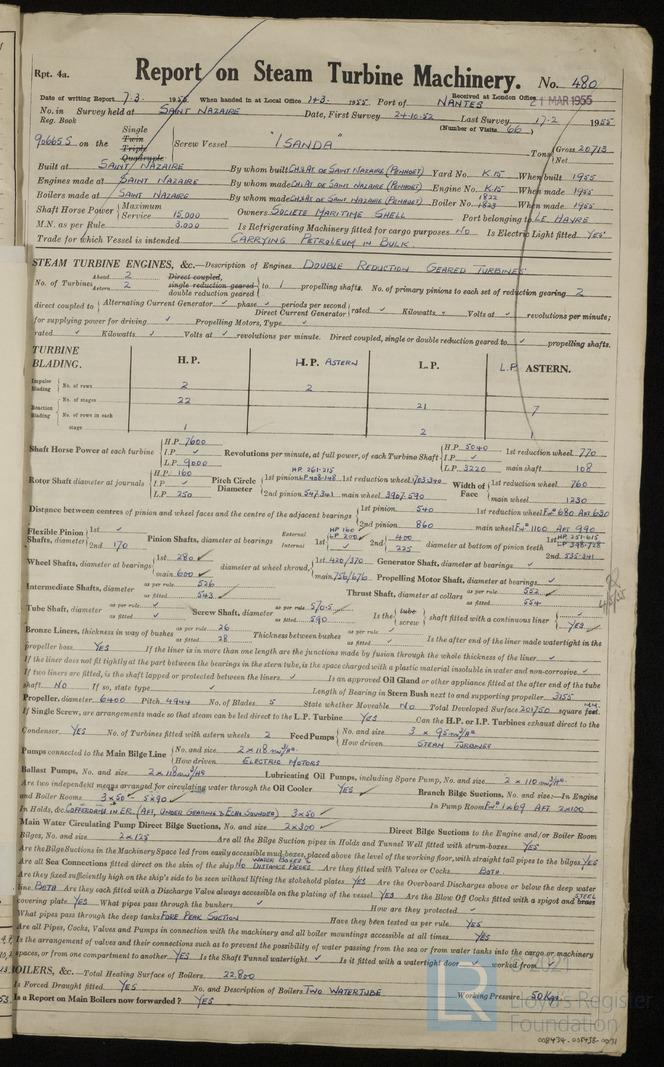 Rpt. 4a.
Report on Steam Turbine Machinery. No. 480
Received at London Office 21 MAR 1955
Date of writing Report 7.3. 1955. When handed in at Local Office 14.3. 1955. Port of NANTES
No. in Survey held at SAINT NAZAIRE Date, First Survey 24-10-52 Last Survey 17-2 1955
Reg. Book (Number of Visits 66)
90665S on the Single Twin Triple Quadruple Screw Vessel "ISANDA" Tons Gross 20713 Net
Built at SAINT NAZAIRE By whom built CH & AT DE SAINT NAZAIRE (PENHOET) Yard No. K.15 When built 1955
Engines made at SAINT NAZAIRE By whom made CH & AT DE SAINT NAZAIRE (PENHOET) Engine No. K.15 When made 1955
Boilers made at SAINT NAZAIRE By whom made CH & AT DE SAINT NAZAIRE (PENHOET) Boiler No. 1822 1823 When made 1955
Shaft Horse Power Maximum Service 15.000 Owners SOCIETE MARITIME SHELL Port belonging to LE HAVRE
M.N. as per Rule 3.000 Is Refrigerating Machinery fitted for cargo purposes NO Is Electric Light fitted YES
Trade for which Vessel is intended CARRYING PETROLEUM IN BULK.
STEAM TURBINE ENGINES, &c.—Description of Engines DOUBLE REDUCTION GEARED TURBINES
No. of Turbines Ahead 2 Astern 2 Direct coupled, single reduction geared double reduction geared to 1 propelling shafts. No. of primary pinions to each set of reduction gearing 2
direct coupled to Alternating Current Generator ✓ phase ✓ periods per second Direct Current Generator rated ✓ Kilowatts ✓ Volts at ✓ revolutions per minute;
for supplying power for driving ✓ Propelling Motors, Type ✓
rated ✓ Kilowatts ✓ Volts at ✓ revolutions per minute. Direct coupled, single or double reduction geared to ✓ propelling shafts.
TURBINE BLADING. H.P. H.P. ASTERN L.P. L.P. ASTERN.
Impulse Blading No. of rows 2 2
Reaction Blading No. of stages 22 21 7
No. of rows in each stage 1 2
Shaft Horse Power at each turbine H.P. 7600 I.P. ✓ L.P. 9000 Revolutions per minute, at full power, of each Turbine Shaft H.P. 5040 I.P. ✓ L.P. 3220 1st reduction wheel 770 main shaft 108
Rotor Shaft diameter at journals H.P. 160 I.P. ✓ L.P. 250 Pitch Circle Diameter 1st pinion HP 261.215 1st reduction wheel 2nd pinion 547.341 main wheel 3907.590 Width of Face 1st reduction wheel 760 main wheel 1230
Distance between centres of pinion and wheel faces and the centre of the adjacent bearings 1st pinion 540 2nd pinion 860 1st reduction wheel Fwd 680 Aft 630 main wheel Fwd 1100 AFT 990
Flexible Pinion Shafts, diameter 1st ✓ 2nd 170 Pinion Shafts, diameter at bearings External Internal 1st HP 160 LP 200 2nd 400 225 diameter at bottom of pinion teeth 1st HP 251.615 LP 398.728 2nd 535.341
Wheel Shafts, diameter at bearings 1st 280 main 600 diameter at wheel shroud, 1st 420/370 main 756/676 Generator Shaft, diameter at bearings ✓ Propelling Motor Shaft, diameter at bearings ✓
Intermediate Shafts, diameter as per rule 526 as fitted 543 Thrust Shaft, diameter at collars as per rule 552 as fitted 554
Tube Shaft, diameter as per rule ✓ as fitted ✓ Screw Shaft, diameter as per rule 570.5 as fitted 590 Is the tube screw shaft fitted with a continuous liner ✓ YES
Bronze Liners, thickness in way of bushes as per rule 26 as fitted 28 Thickness between bushes as per rule ✓ as fitted ✓ Is the after end of the liner made watertight in the
propeller boss YES If the liner is in more than one length are the junctions made by fusion through the whole thickness of the liner ✓
If the liner does not fit tightly at the part between the bearings in the stern tube, is the space charged with a plastic material insoluble in water and non-corrosive ✓
If two liners are fitted, is the shaft lapped or protected between the liners ✓ Is an approved Oil Gland or other appliance fitted at the after end of the tube
shaft NO If so, state type ✓ Length of Bearing in Stern Bush next to and supporting propeller 3155
Propeller, diameter 6400 Pitch 4944 No. of Blades 5 State whether Moveable NO Total Developed Surface 201750 square feet.
If Single Screw, are arrangements made so that steam can be led direct to the L.P. Turbine YES Can the H.P. or I.P. Turbines exhaust direct to the
Condenser YES No. of Turbines fitted with astern wheels 2 Feed Pumps No. and size 3 x 95 m³/Hr How driven STEAM TURBINES
Pumps connected to the Main Bilge Line No. and size 2 x 118 m³/Hr How driven ELECTRIC MOTORS
Ballast Pumps, No. and size 2 x 118 m³/Hr Lubricating Oil Pumps, including Spare Pump, No. and size 2 x 110 m³/Hr
Are two independent means arranged for circulating water through the Oil Cooler YES Branch Bilge Suctions, No. and size:—In Engine
and Boiler Rooms 3 x 50 - 5 x 90 In Pump Room Fwd 1 x 69 AFT 2 x 100
In Holds, &c. COFFERDAM IN ER (AFT, UNDER GEARING & ECHO SOUNDER) 3 x 50
Main Water Circulating Pump Direct Bilge Suctions, No. and size 2 x 300 Direct Bilge Suctions to the Engine and/or Boiler Room
Bilges, No. and size 2 x 125 Are all the Bilge Suction pipes in Holds and Tunnel Well fitted with strum-boxes YES
Are the Bilge Suctions in the Machinery Space led from easily accessible mud-boxes, placed above the level of the working floor, with straight tail pipes to the bilges YES
Are all Sea Connections fitted direct on the skin of the ship NO WATER BOXES & DISTANCE PIECES Are they fitted with Valves or Cocks BOTH
Are they fixed sufficiently high on the ship's side to be seen without lifting the stokehold plates YES Are the Overboard Discharges above or below the deep water
line BOTH Are they each fitted with a Discharge Valve always accessible on the plating of the vessel YES Are the Blow Off Cocks fitted with a spigot and brass STEEL
covering plate YES What pipes pass through the bunkers ✓ How are they protected ✓
What pipes pass through the deep tanks FORE PEAK SUCTION Have they been tested as per rule YES
Are all Pipes, Cocks, Valves and Pumps in connection with the machinery and all boiler mountings accessible at all times YES
Is the arrangement of valves and their connections such as to prevent the possibility of water passing from the sea or from water tanks into the cargo or machinery
spaces, or from one compartment to another YES Is the Shaft Tunnel watertight ✓ Is it fitted with a watertight door ✓ worked from ✓
BOILERS, &c.—Total Heating Surface of Boilers 22.800
Is Forced Draught fitted YES No. and Description of Boilers TWO WATERTUBE Working Pressure 50 Kgs.
Is a Report on Main Boilers now forwarded? YES
© 2021
LR
Lloyd's Register
Foundation
008434-008438-0071